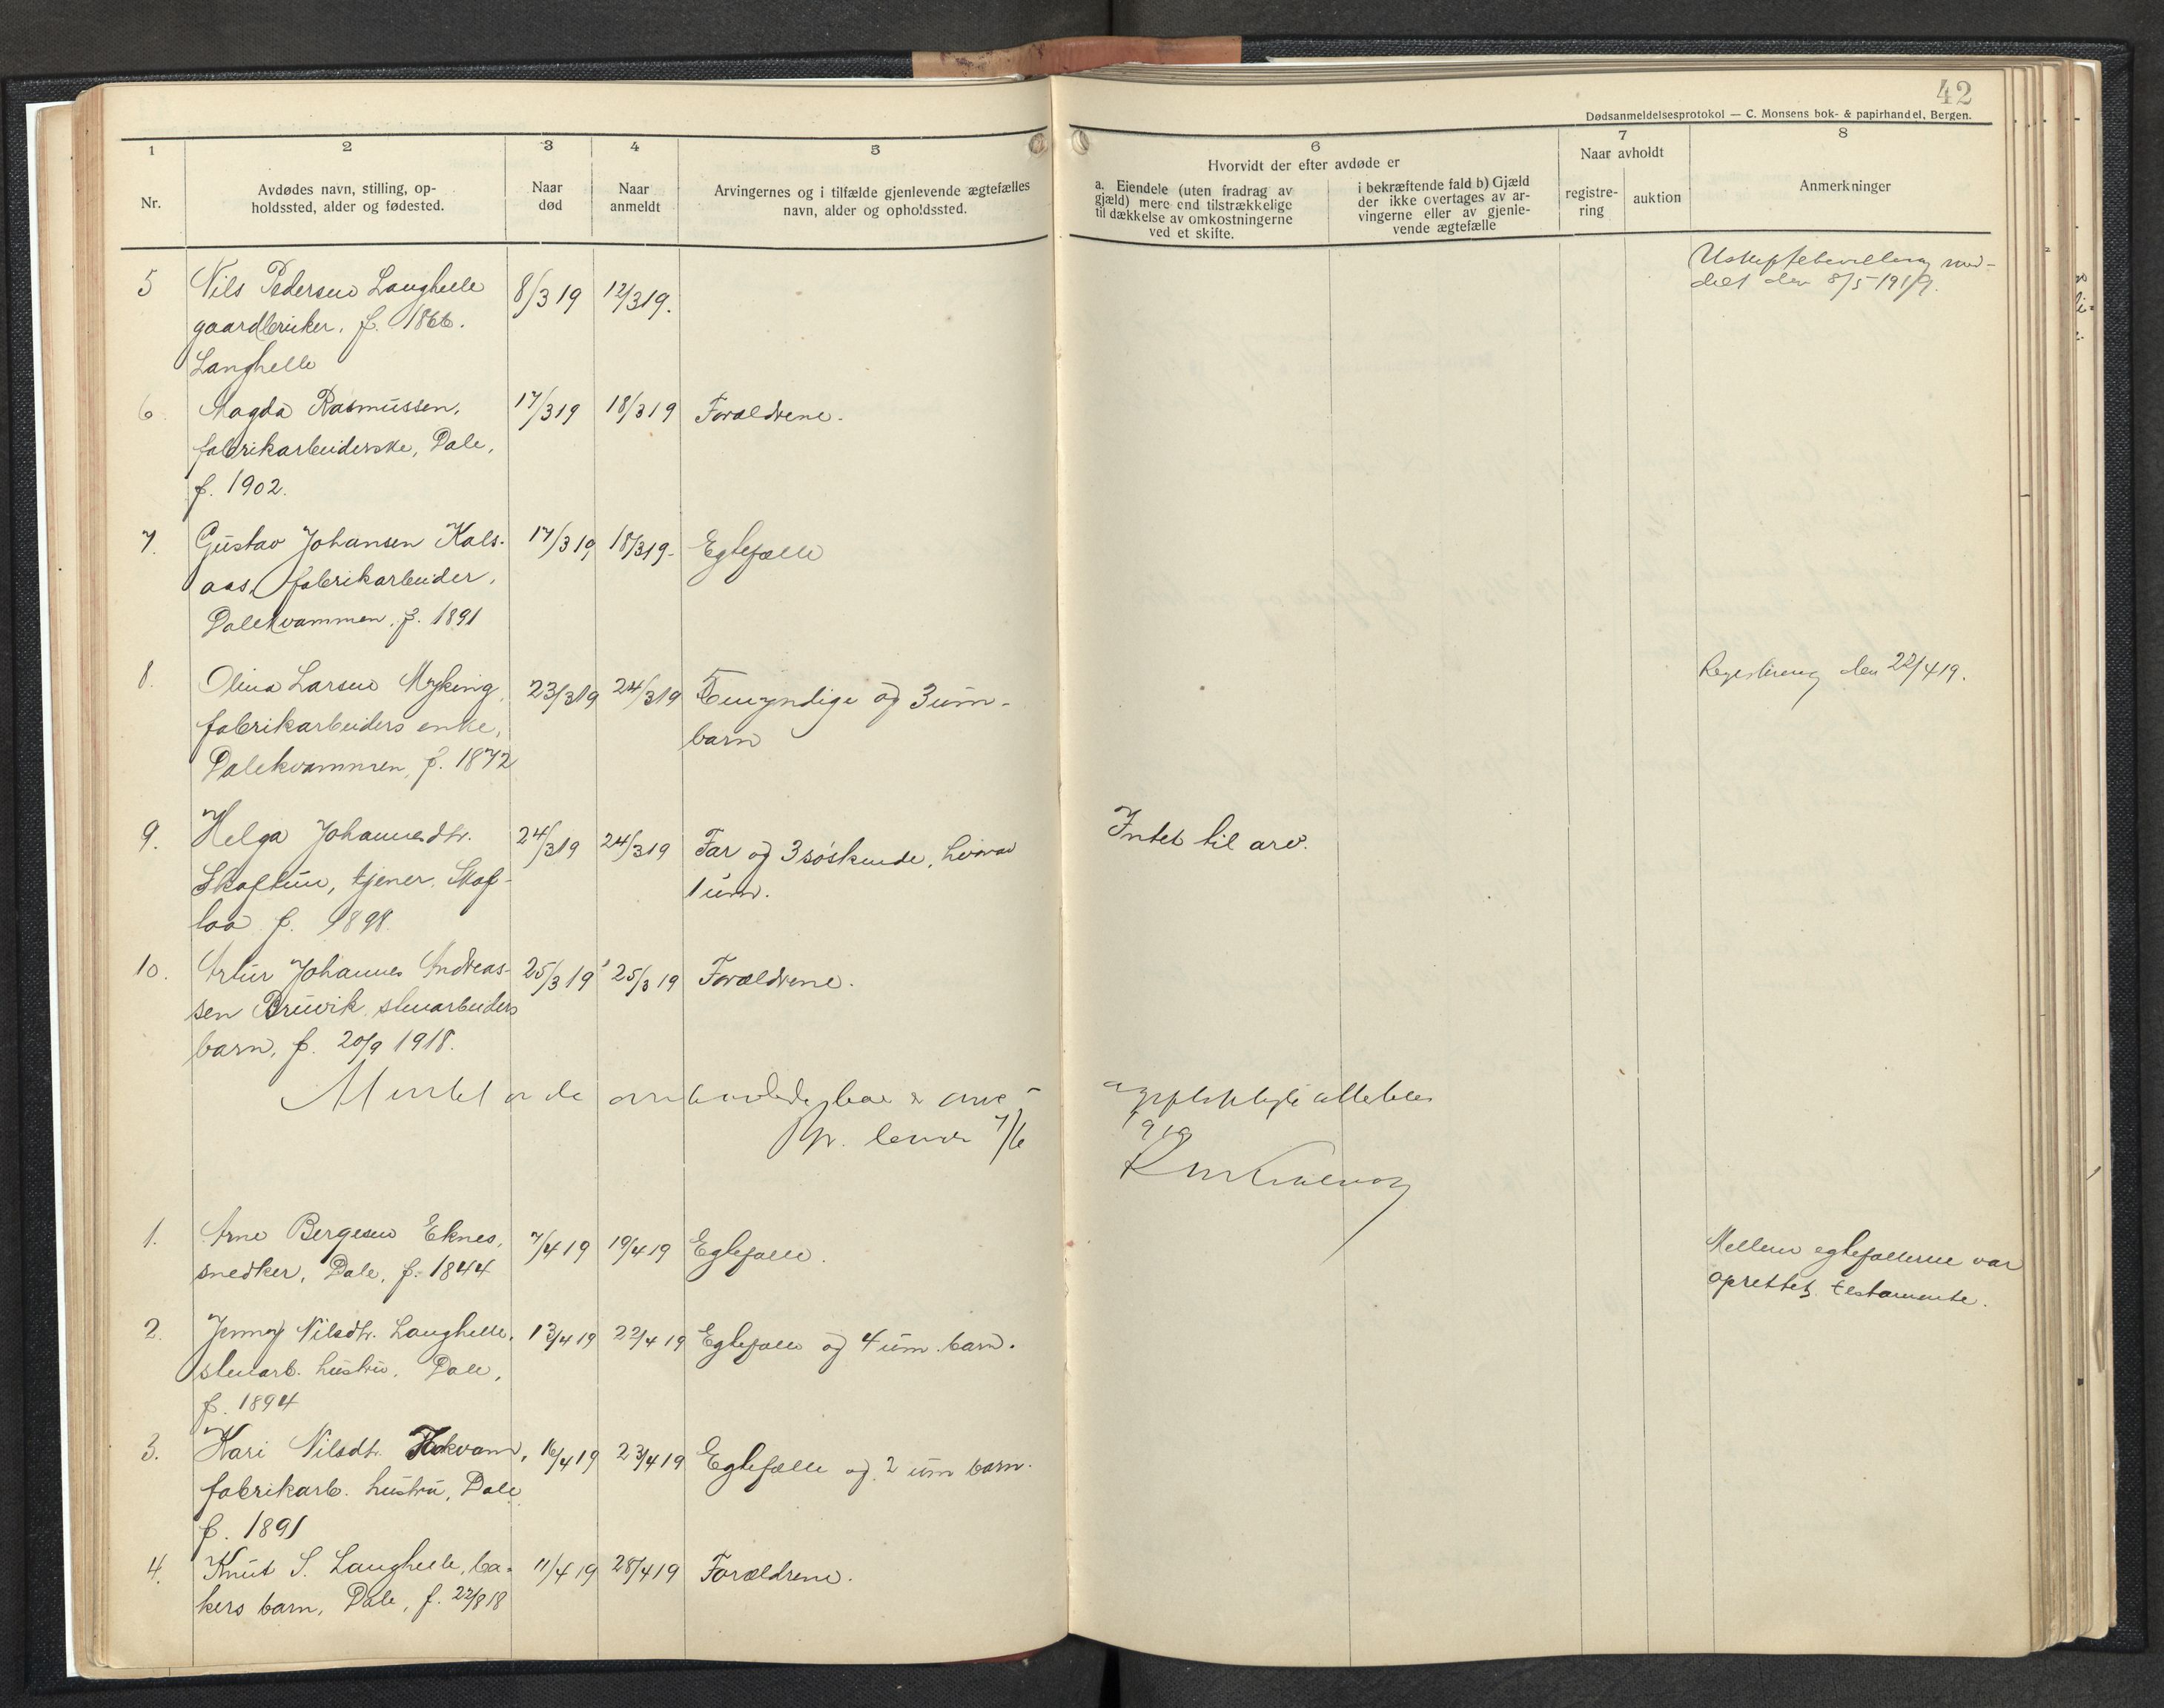 42
Dødsanmeldelsesprotokol — C. Monsens bok- & papirhandel, Bergen.
1 2 3 4 5 6 7 8
Nr.
Avdødes navn, stilling, op-
holdssted, alder og fødested.
Naar
død
Naar
anmeldt
Arvingernes og i tilfælde gjenlevende ægtefælles
navn, alder og opholdssted.
Hvorvidt der efter avdøde er
a. Eiendele (uten fradrag av
gjæld) mere end tilstrækkelige
til dækkelse av omkostningerne
ved et skifte.
i bekræftende fald b) Gjæld
der ikke overtages av ar-
vingerne eller av gjenle-
vende ægtefælle
Naar avholdt
registre-
ring
auktion
Anmerkninger
5 Nils Pedersen Langhelle 8/3 19 12/3 19.
gaardbruker, f. 1866.
Langhelle
Uskiftebevilling med-
delt den 8/5 1919.
6 Magda Rasmussen, 17/3 19 18/3 19 Forældrene.
fabrikarbeiderske, Dale,
f. 1902.
7. Gustav Johansen Kals- 17/3 19 18/3 19- Egtefælle
aas, fabrikarbeider,
Dalekvammen, f. 1891
8. Olina Larsen Myking, 23/3 19 24/3 19 5 myndige og 3 um-
fabrikarbeiders enke, barn
Dalekvammen, f. 1872
Registrering den 22/4 19.
9. Helga Johannesdtr. 24/3 19 24/3 19 Far og 3 søskende, hvorav
Skaftun, tjener, 1 um.
f. 1898
Intet til arv.
10. Artur Johannes Andreas- 25/3 19 25/3 19 Forældrene.
sen Bruvik, stuarbeiders
barn, f. 20/9 1918.
7/6
1919
1. Arne Bergesen Eknes, 7/4 19 19/4 19 Egtefælle.
snedker, Dale, f. 1844
Mellem egtefællerne var
oprettet testamente.
2. Jenny Nilsdtr. Langhelle, 13/4 19 22/4 19 Egtefælle og 4 um. barn.
stuarb. hustru, Dale,
f. 1894
3. Kari Nilsdtr. 16/4 19 23/4 19 Egtefælle og 2 um barn.
fabrikarb. hustru, Dale
f. 1891
4. Knut S. Langhelle, ba- 11/4 19 28/4 19 Forældrene.
kers barn, Dale, f. 22/8 18